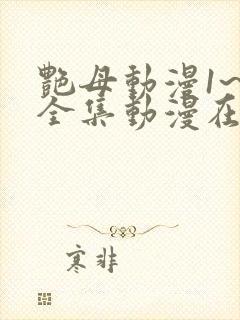 艷母動漫1~
全集動漫在
寒非